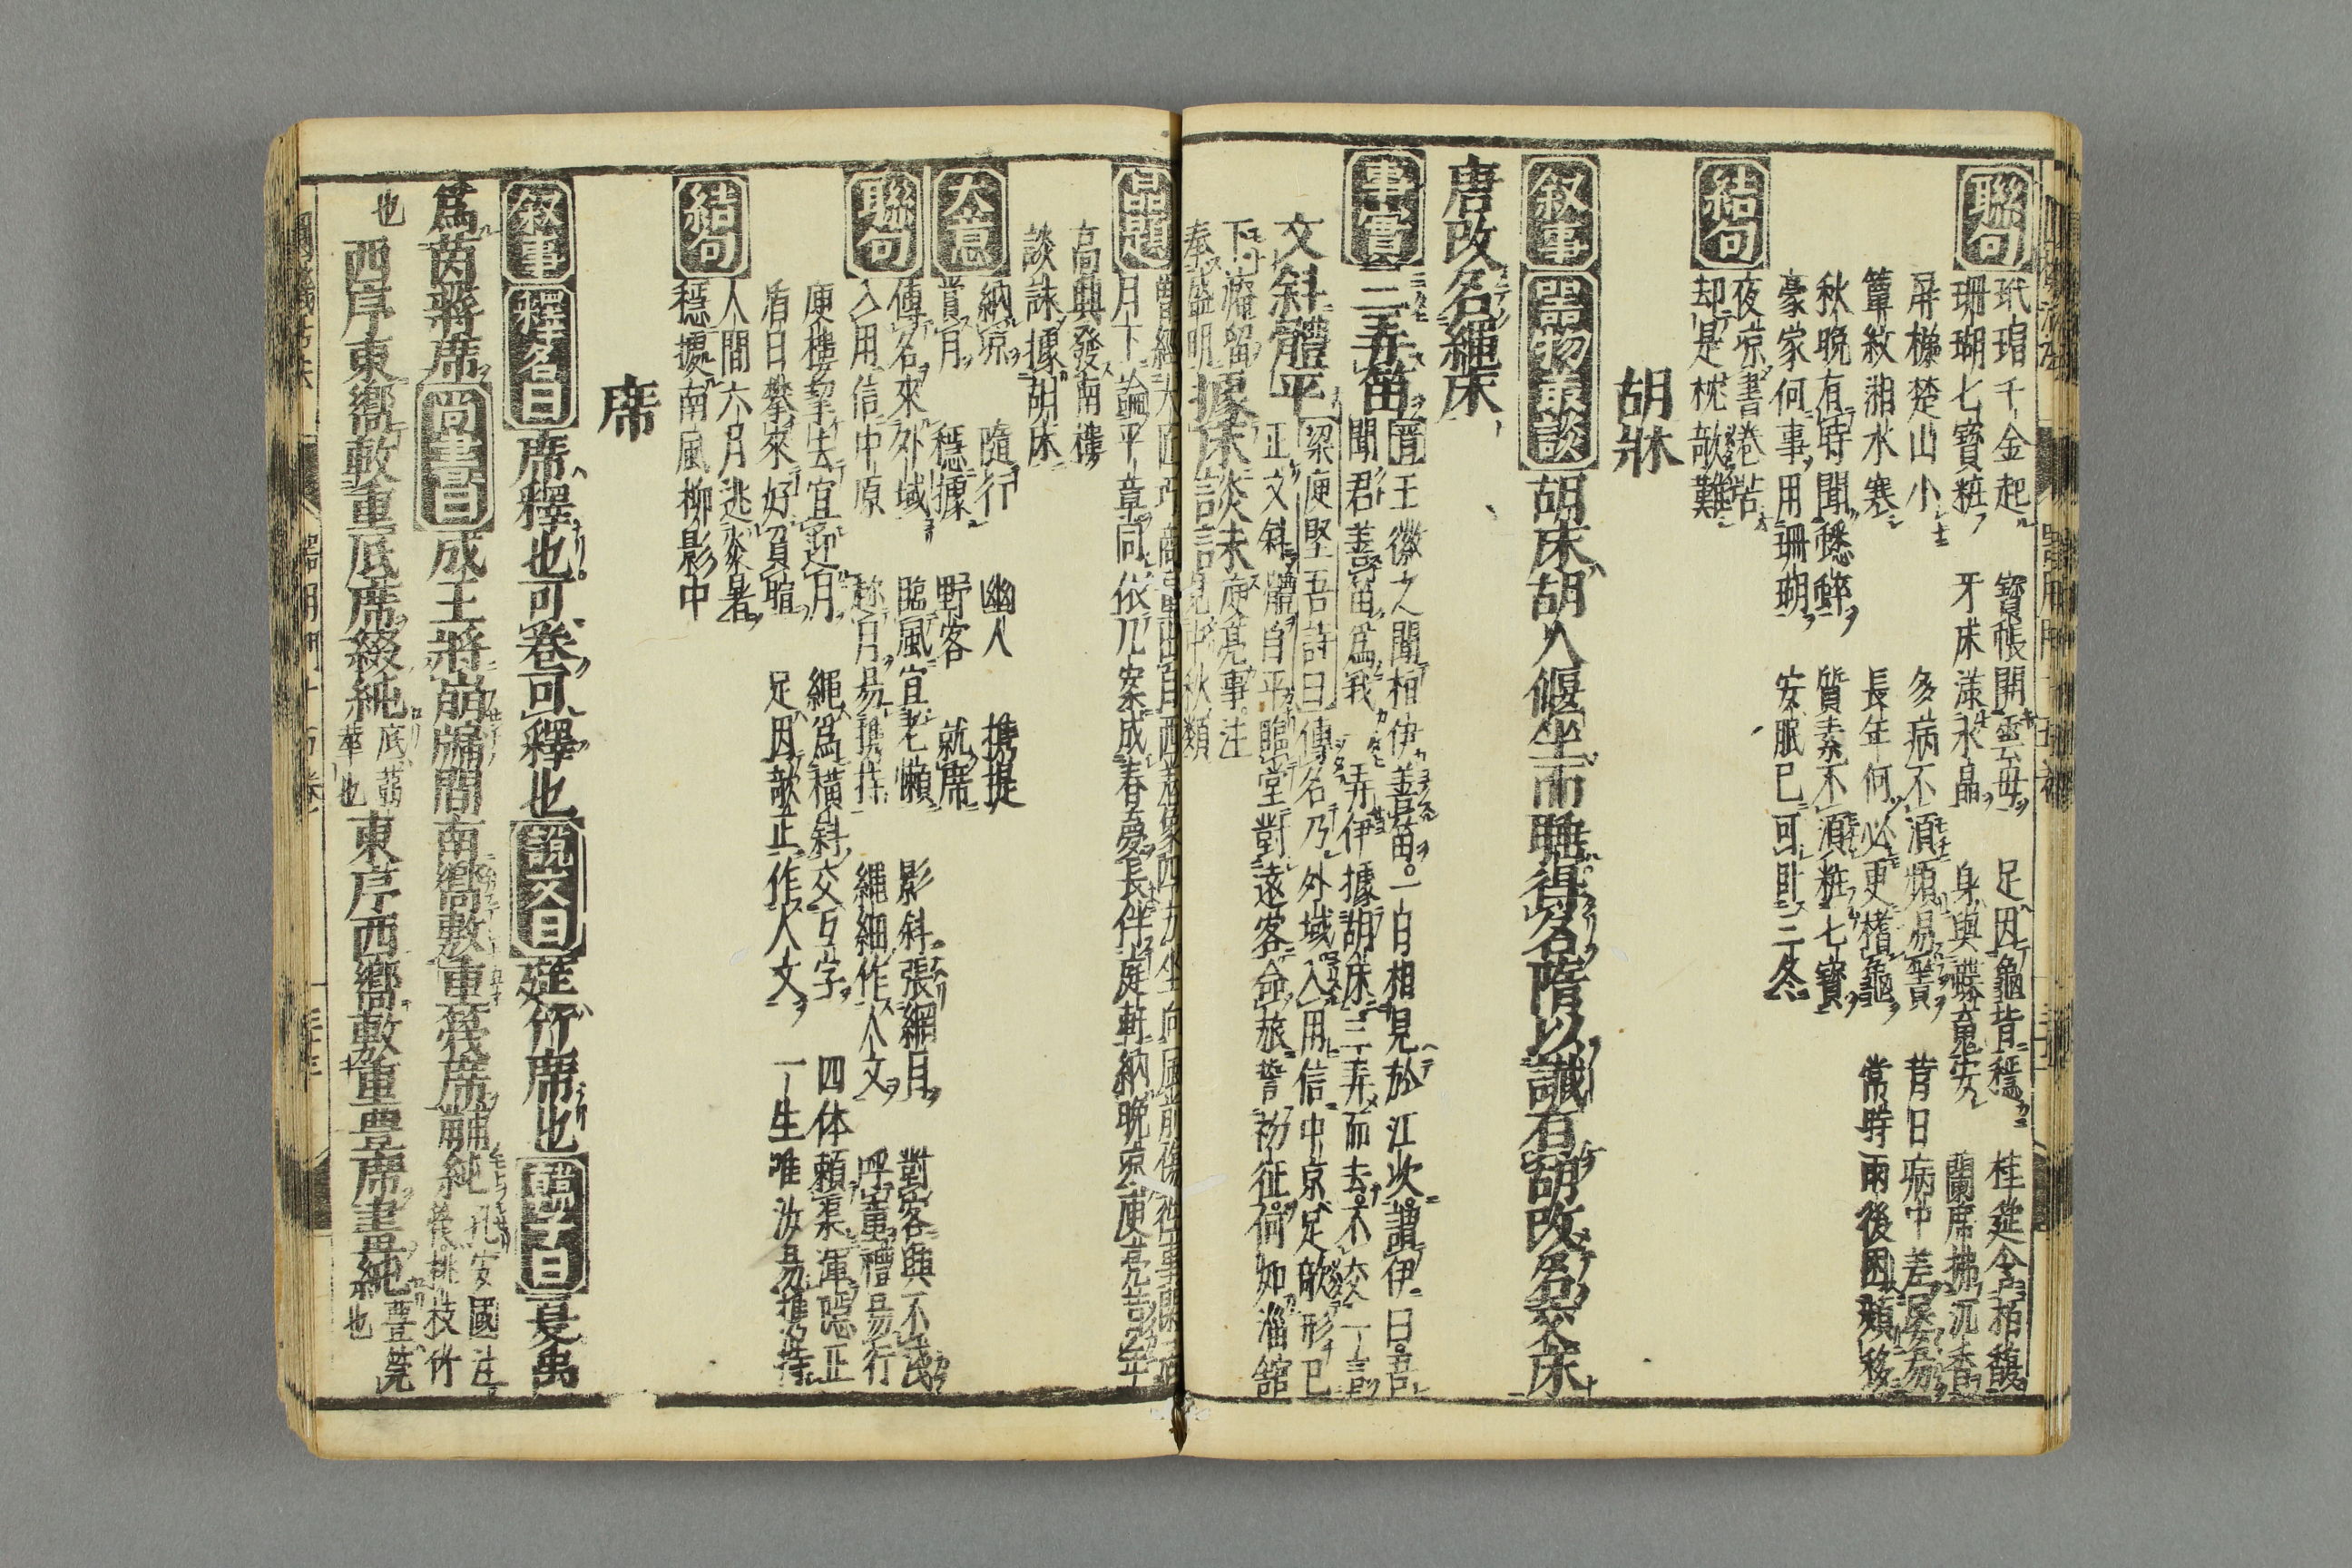 聯句 玳瑁千金起 寶帳開雲母 足因龜背穩 桂筵含柏馥
珊瑚七寶粧 牙床漾水晶 身與蝶䰟安 蘭席拂沉香
屏橫楚山小 多病不湏頻易簀 昔日病中差屢易
簟紋湘水寒 長年何必更榰龜 常時雨後困頻移
秋晚有時聞蟋蟀 質素不湏粧七寶
豪家何事用珊瑚 安眠已可卧三冬
結句 夜凉書卷苦
却是枕敧難
胡牀
叙事 器物叢談 胡床胡人偃坐而睡得名隋以讖有胡改名交床
唐改名繩床
事實 三弄笛 晉王徽之聞桓伊善笛一日相見於江次謂伊曰吾
聞君善笛爲我弄伊據胡床三弄而去不交一言
文斜體平 梁庾堅吾詩曰傳名乃外域入用信中京足欹形已
正文斜體自平臨堂對遠客命旅誓初征何如淄舘
下淹留
奉盛明 據床談詠 庾亮事注
見中秋類
品題
月下論平章同依几案成春夢長伴庭軒納晚凉庾亮
高興發南樓
談詠據胡床
大意 納凉 隨行 幽人 携提
賞月 穩據 野客 就席
聯句 傳名來外域 臨風宜老懶 影斜張網月 對客與不淺
入用信中原 趂月易携持 繩細作人文 呼童禮易行
庾樓挈去宜迎月 繩爲橫斜交互字 四体賴渠渾隱正
盾日攀來好負暄 足因敧正作人文 一生唯汝易携持
結句 人間六月逃炎暑
穩據南風柳影中
席
叙事 釋名曰 席釋也可卷可釋也 說文曰 筵竹席也 韓子曰 夏禹
爲茵蔣席 尚書曰 成王將崩牖間南嚮敷重篾席黼純 孔安國注
篾桃枝竹
也 西序東嚮敷重底席綴純 底蒻
苹也 東序西嚮敷重豊席畫純 豊莞
也